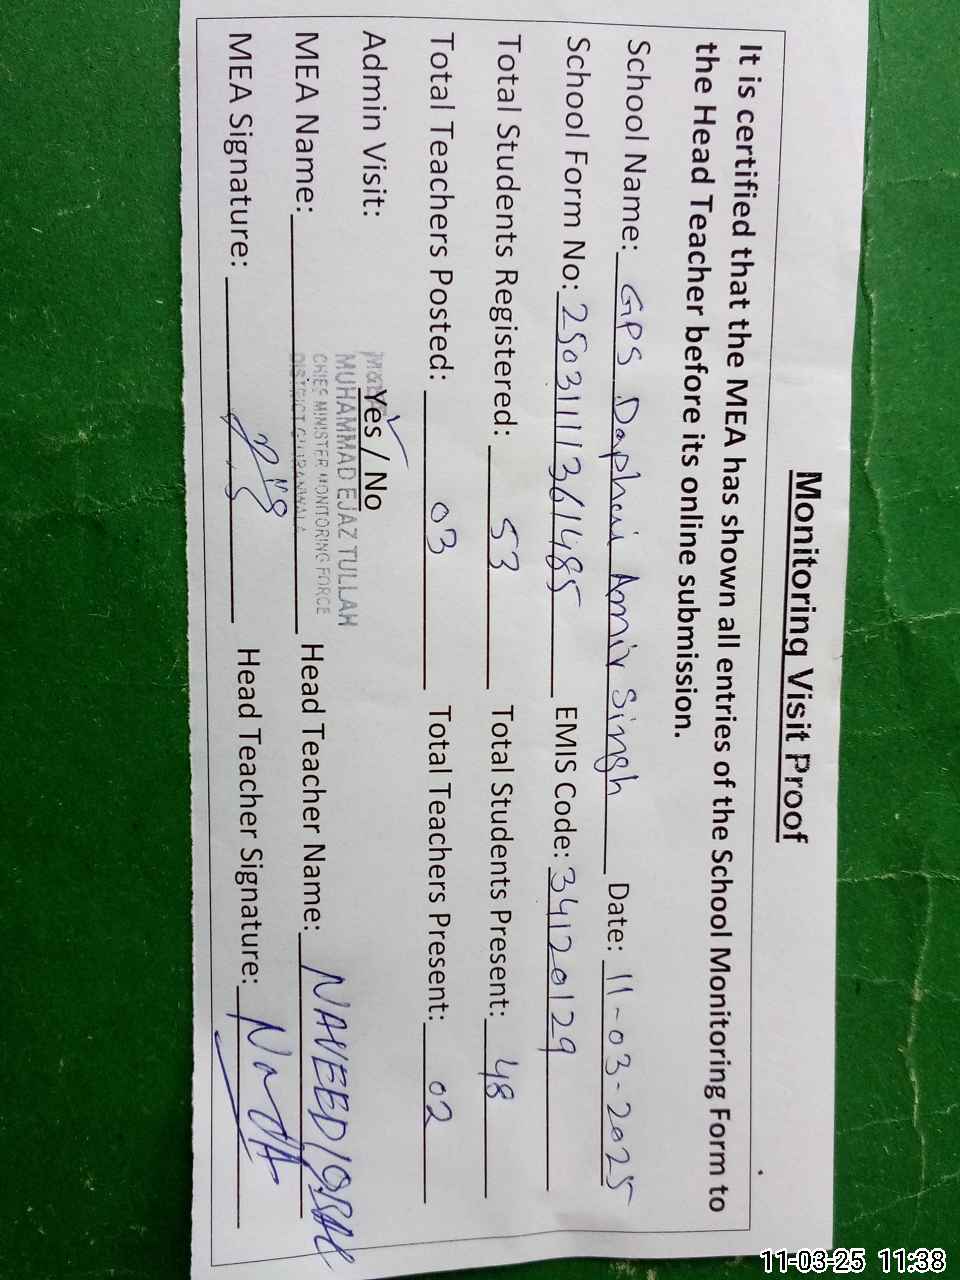 Monitoring Visit Proof
It is certified that the MEA has shown all entries of the School Monitoring Form to
the Head Teacher before its online submission.
School Name: GPS Daphai Amir Singh Date: 11-03-2025
School Form No: 25031111361485 EMIS Code: 34120129
Total Students Registered: 53 Total Students Present: 48
Total Teachers Posted: 03 Total Teachers Present: 02
Admin Visit: Yes / No
MUHAMMAD EJAZ TULLAH
CHIEF MINISTER MONITORING FORCE
DISTRICT GUJRANWALA
MEA Name: Head Teacher Name: NAVEED
MEA Signature: Head Teacher Signature:
11-03-25 11:38